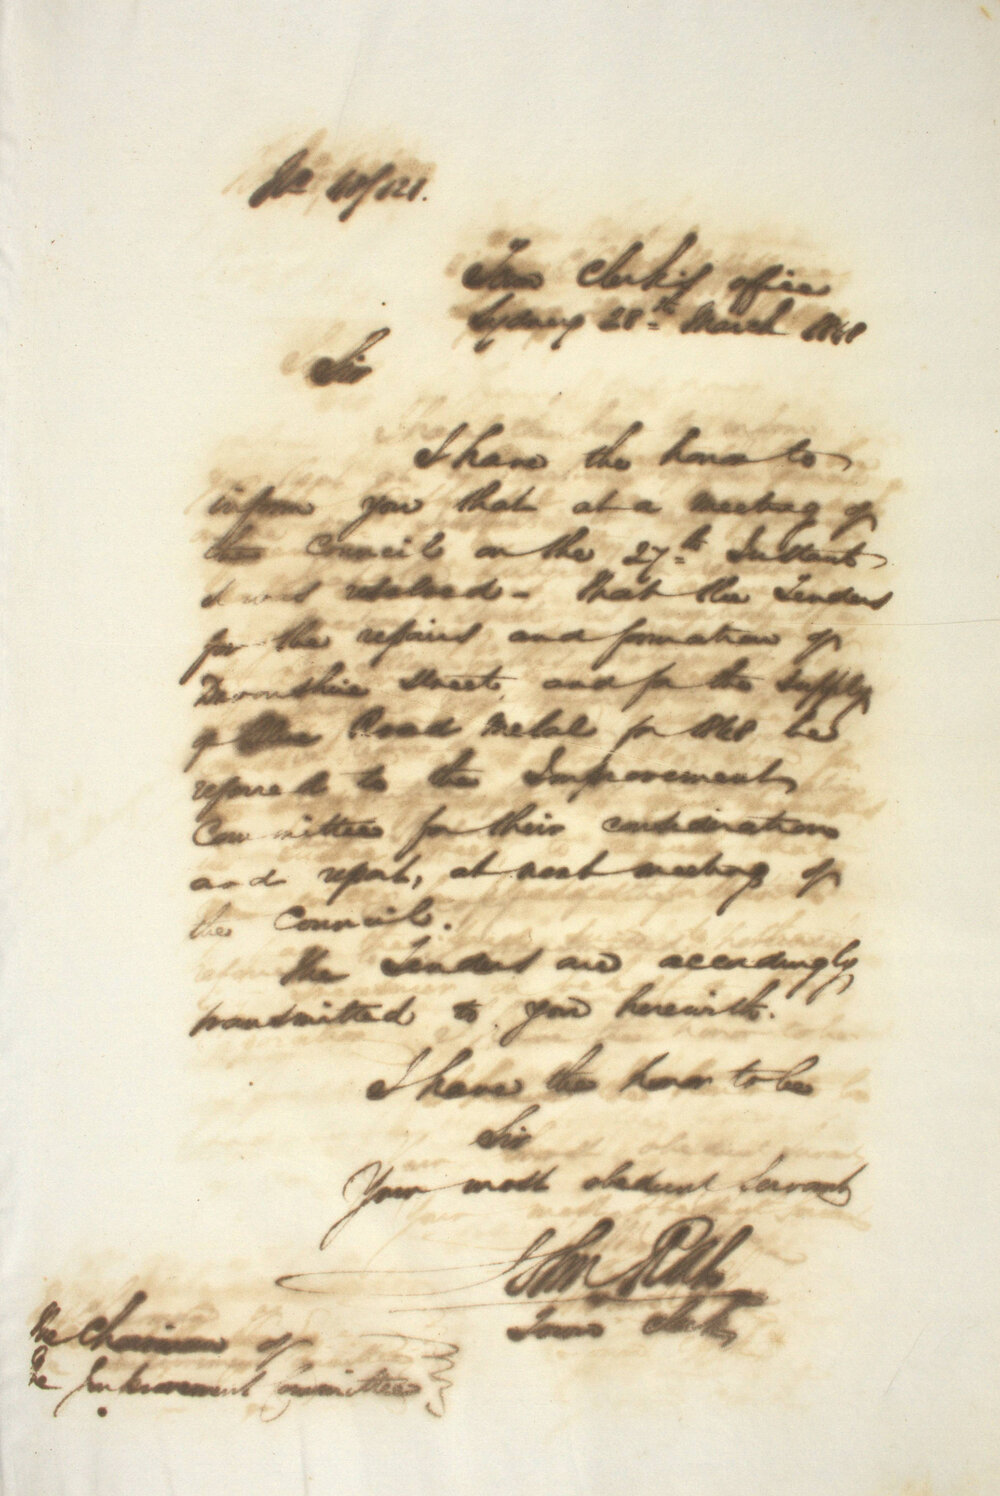 No 40/121.
Town Clerk's office
Sydney 28th March 1868
Sir
I have the honor to
inform you that at a meeting of
the Council on the 27th Instant
it was resolved - that the Tenders
for the repairs and formation of
Devonshire Street, and for the supply
of Blue Road Metal for 1868 be
referred to the Improvement
Committee for their consideration
and report, at next meeting of
the Council.
The Tenders are accordingly
transmitted to you herewith.
I have the honor to be
Sir
Your most obedient Servant
Town Clerk
The Chairman of
The Improvement Committee